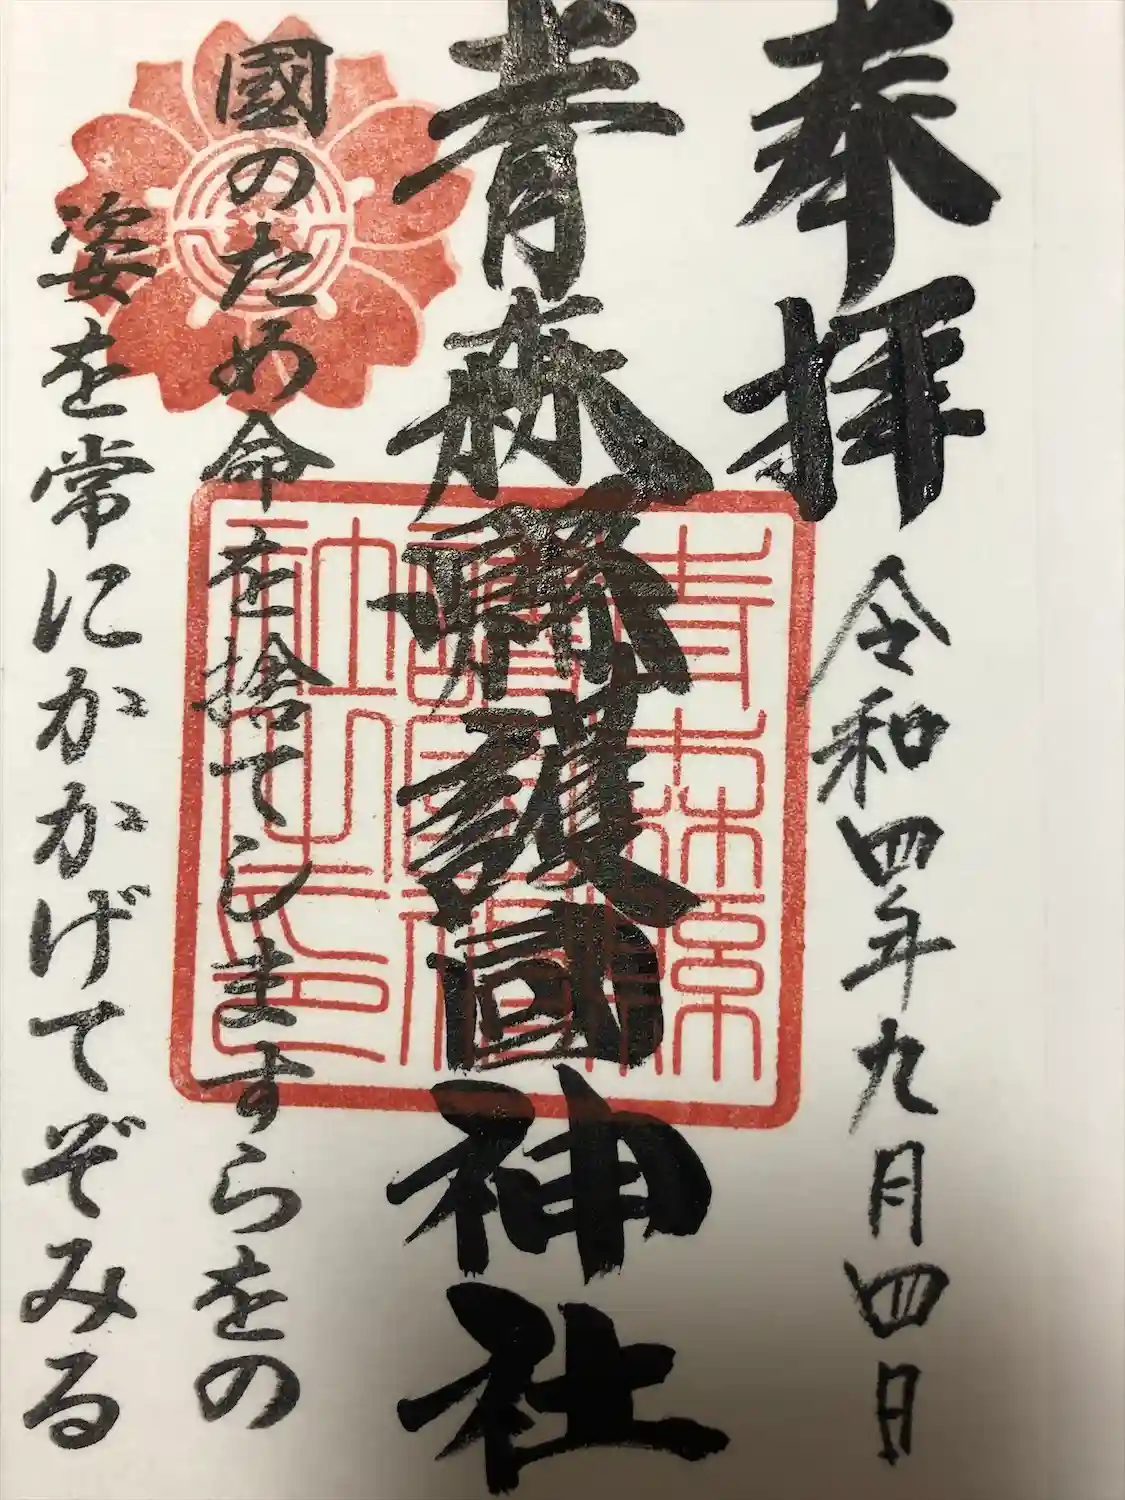 奉拝
令和四年九月四日
青森縣護國神社
青森縣護國神社之印
國のため命を捨てしますらをの
姿を常にかかげてぞみる